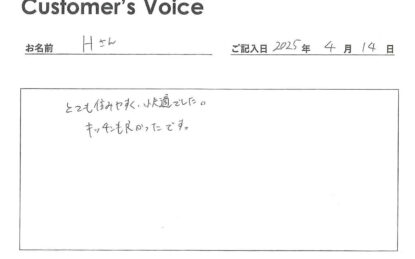 Customer's Voice
お名前 Hさん ご記入日 2025年 4月 14日
とても住みやすく、快適でした。
キッチンも良かったです。